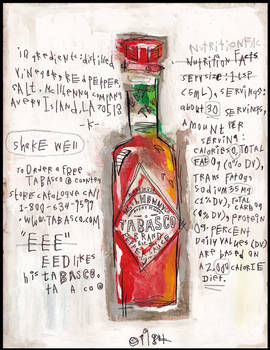 ingredients: distilled
vinegar, red pepper
salt. McIlhenny company
Avery Island, LA 70513
-K-
shake well
to order a free
TABASCO® country
store catalogue call
1-800-634-9599
www.TABASCO.com
"EEE"
EED likes
his TABASCO.
TABACO
NUTRITION FAC
Nutrition Facts
serv size: 1 tsp
(5ML), servings:
about 30 servings,
amount per
serving:
calories 0, total
fat 0g (0% DV),
trans fat 0g
sodium 35mg
(1% DV), total
carb 0g
(0% DV), protein
0g. percent
daily values (DV)
are based on
a 2,000 calorie
diet.
McILHENNY CO.
TABASCO
BRAND